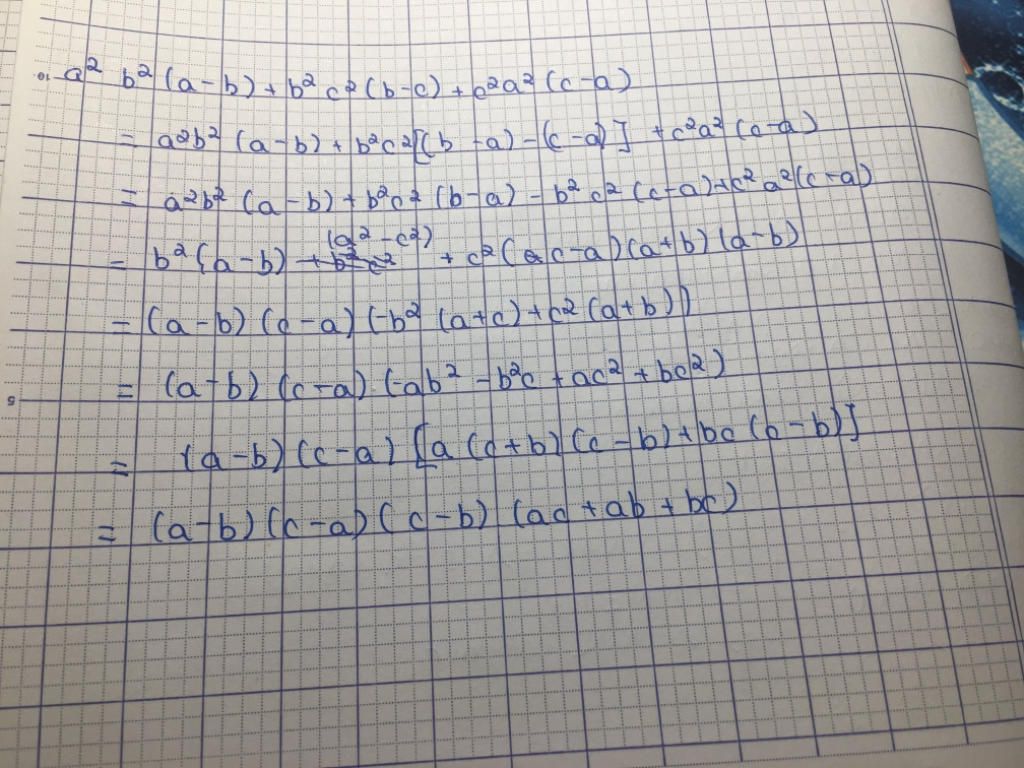 a² b² (a-b) + b² c² (b-c) + c²a² (c-a)
= a²b² (a-b) + b²c² [(b-a) - (c-a)] + c²a² (c-a)
= a²b² (a-b) + b²c² (b-a) - b²c² (c-a) + c² a² (c-a)
= b² (a-b) (a²-c²) + c² (c-a) (a+b) (a-b)
= (a-b) (c-a) (-b² (a+c) + c² (a+b))
= (a-b) (c-a) (-ab² - b²c + ac² + bc²)
= (a-b) (c-a) [a (c+b) (c-b) + bc (c-b)]
= (a-b) (c-a) (c-b) (ac + ab + bc)